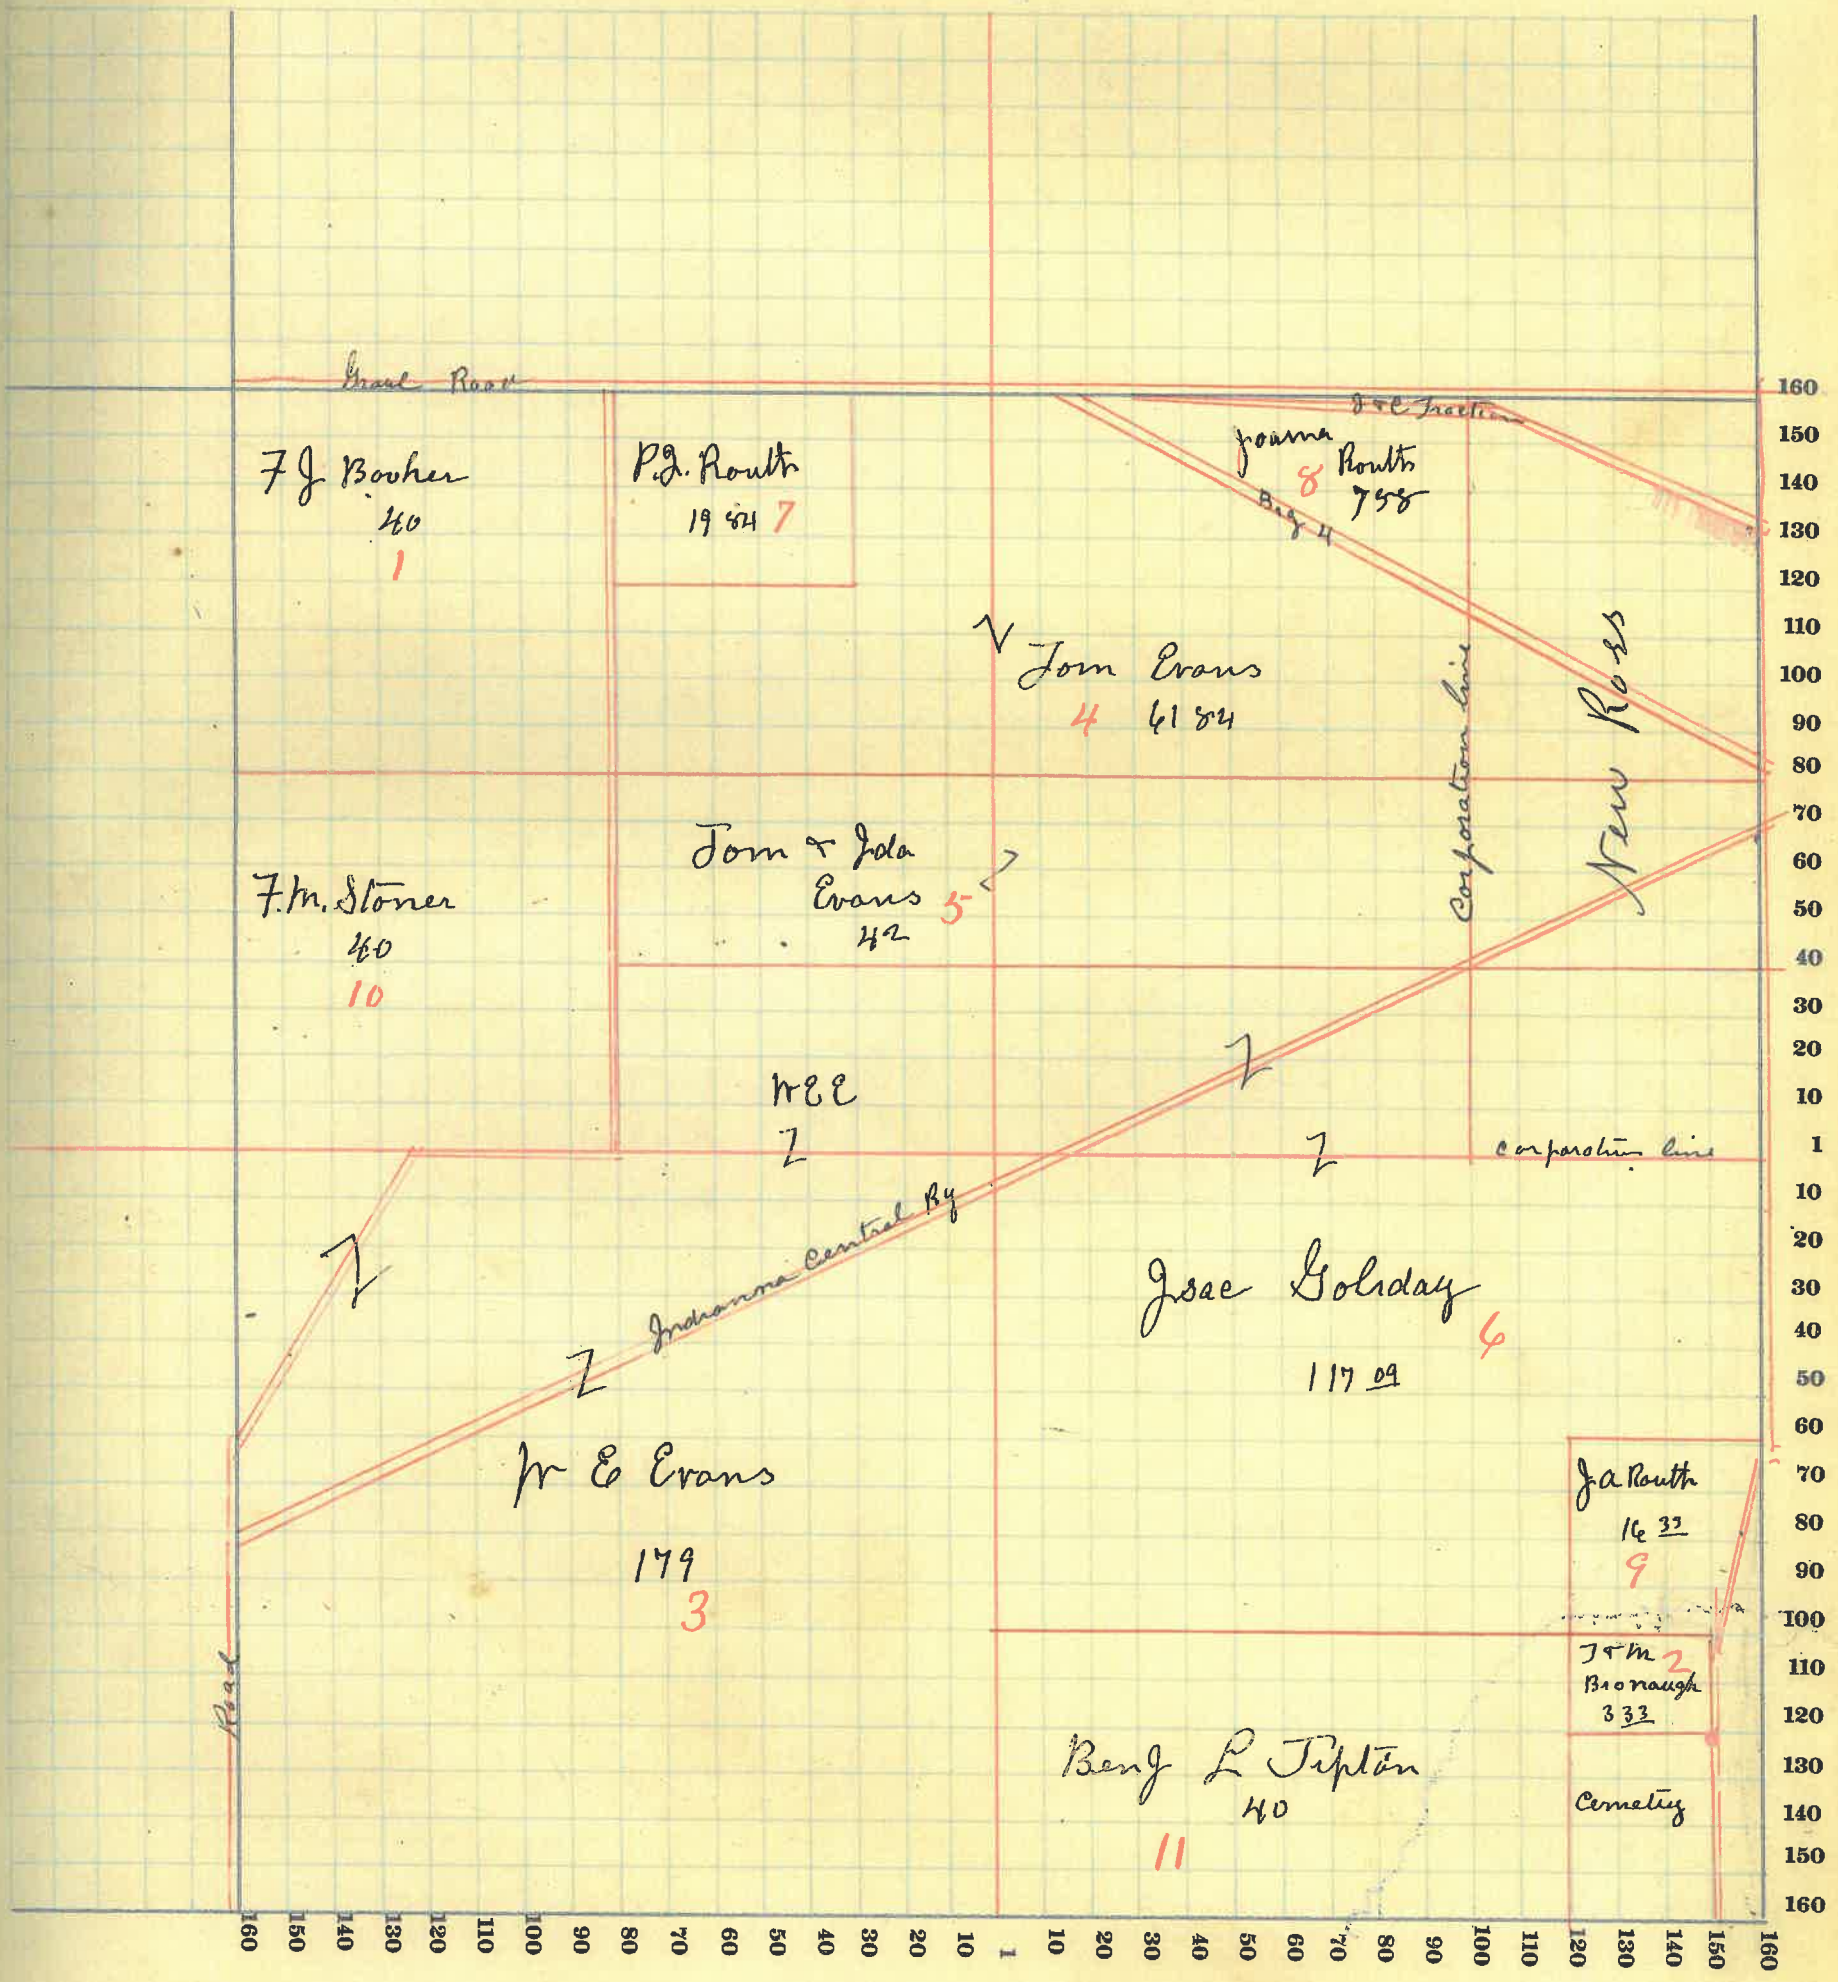 Gravel Road
J & C Traction
F J Booher
40
1
P.J. Routh
19 84 7
Joanna
8 Routh
7 58
Big 4
Tom Evans
4 61 84
Corporation line
New Ross
F.M. Stoner
40
10
Tom & Ida
Evans 5
42
W E E
Z
Z
Z
corporation line
Z
Z
Indianna Central Ry
Isac Goliday
6
117 09
W E Evans
179
3
J A Routh
16 39
9
J & M 2
Bronaugh
3 33
Road
Benj L Tipton
40
11
Cemetiy
160
150
140
130
120
110
100
90
80
70
60
50
40
30
20
10
1
10
20
30
40
50
60
70
80
90
100
110
120
130
140
150
160
160 150 140 130 120 110 100 90 80 70 60 50 40 30 20 10 1 10 20 30 40 50 60 70 80 90 100 110 120 130 140 150 160